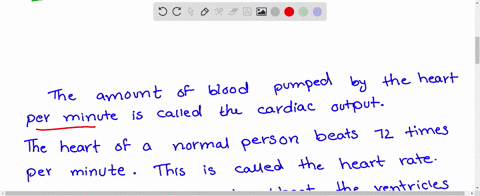 The amount of blood pumped by the heart
per minute is called the cardiac output.
The heart of a normal person beats 72 times
per minute. This is called the heart rate.
the ventricles